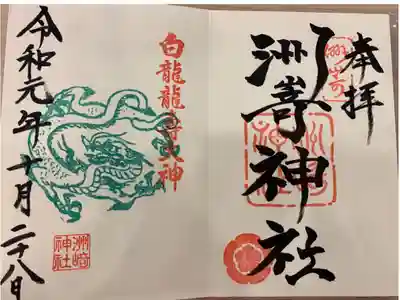 奉拝
洲嵜神社
白龍龍寿大神
令和元年十月二十八日
洲崎
神社